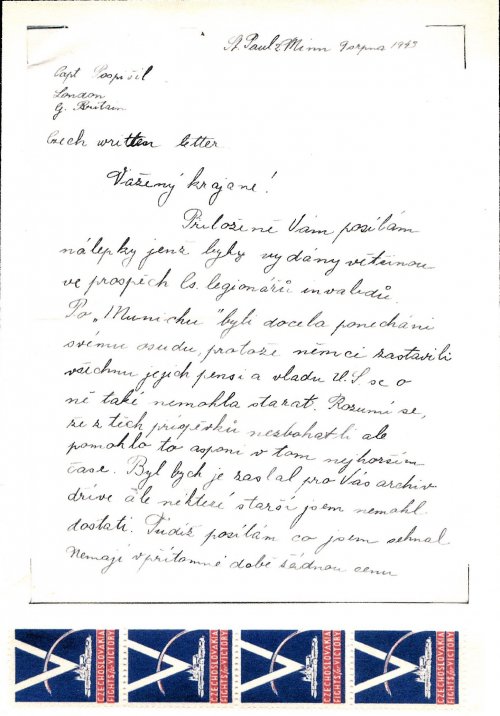 St. Paul, Minn 9 srpna 1943
Capt Pospíšil
London
G. Britain
Czech written letter
Vážený krajane!
Přiložené Vám posílám
nálepky jenž byly vydány většinou
ve prospěch čs. legionářů invalidů.
Po „Munichu" byli docela ponecháni
svému osudu, protože němci zastavili
všechnu jejich pensi a vladu U.S. se o
ně také nemohla starat. Rozumí se,
že z těch příspěvků nezbohatli ale
pomohlo to aspoň v tom nejhorším
čase. Byl bych je zaslal pro Vás archiv
dříve ale některé starší jsem nemohl
dostati. Tudíž posílám co jsem sehnal
Nemají v přítomné době žádnou cenu
CZECHOSLOVAKIA FIGHTS FOR VICTORY
CZECHOSLOVAKIA FIGHTS FOR VICTORY
CZECHOSLOVAKIA FIGHTS FOR VICTORY
CZECHOSLOVAKIA FIGHTS FOR VICTORY